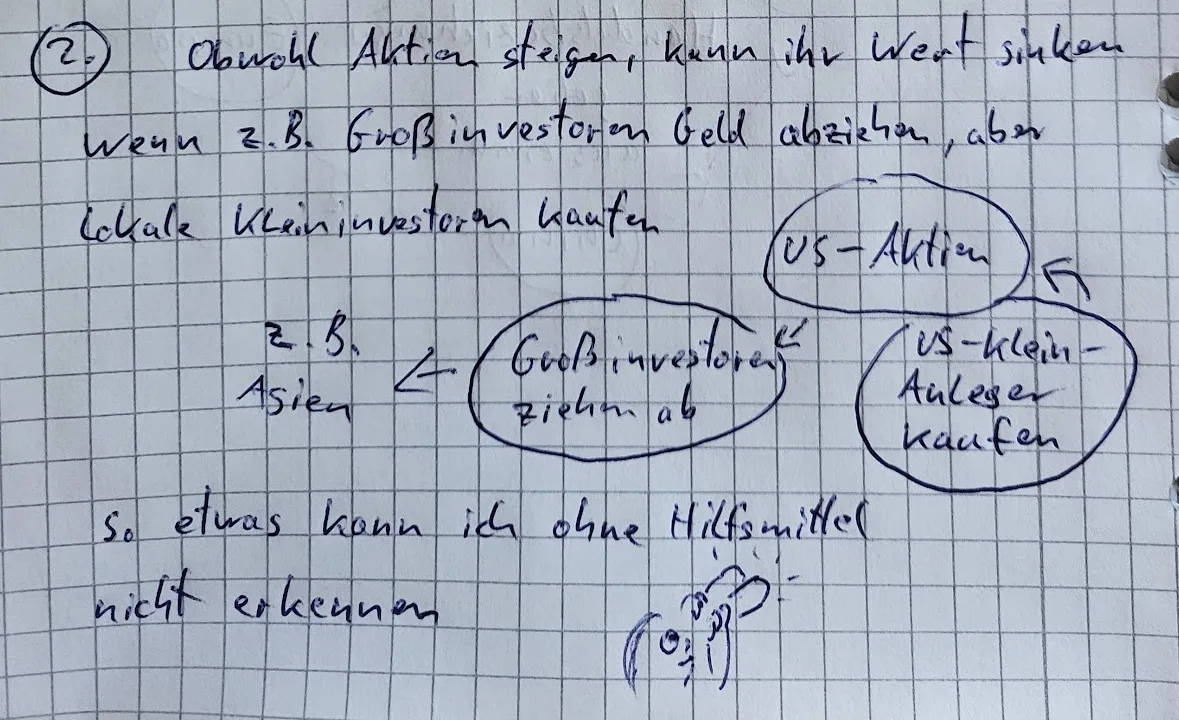 2. Obwohl Aktien steigen, kann ihr Wert sinken
wenn z.B. Großinvestoren Geld abziehen, aber
lokale Kleininvestoren kaufen
US-Aktien
z.B.
Asien
Großinvestoren
ziehen ab
US-Klein-
Anleger
kaufen
so etwas kann ich ohne Hilfsmittel
nicht erkennen